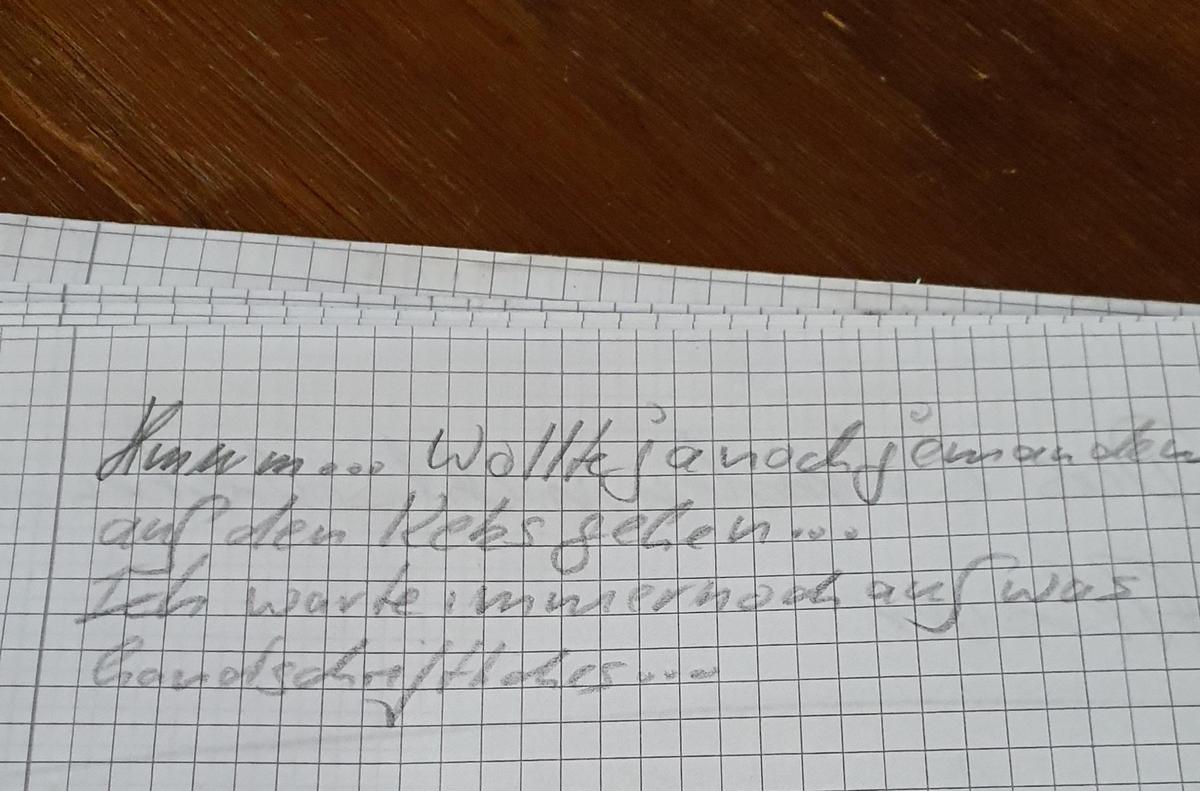 Hmmm... Wollte ja noch jemanden
auf den Keks gehen...
Ich warte immernoch auf was
handschriftliches...